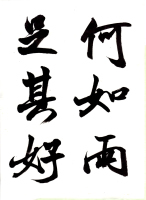 何如雨
足其好